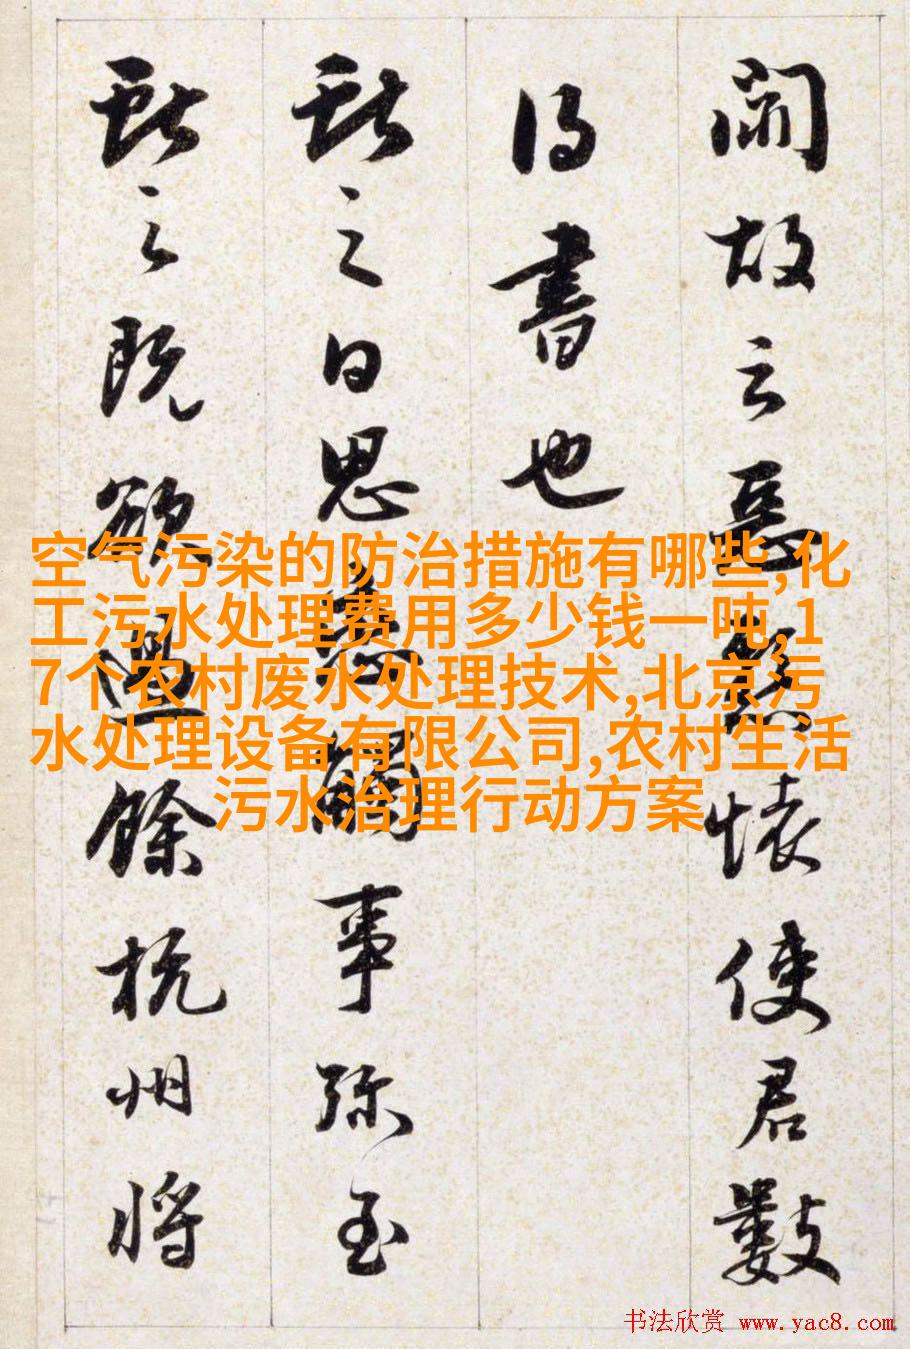 故云惡懸懷使君數
得書也
獻之日思戀觸事彌至
獻之既欲過餘杭州將
空气污染的防治措施有哪些,化
工污水处理费用多少钱一吨,1
7个农村废水处理技术,北京污
水处理设备有限公司,农村生活
污水治理行动方案
书法欣赏 www.yac8.com